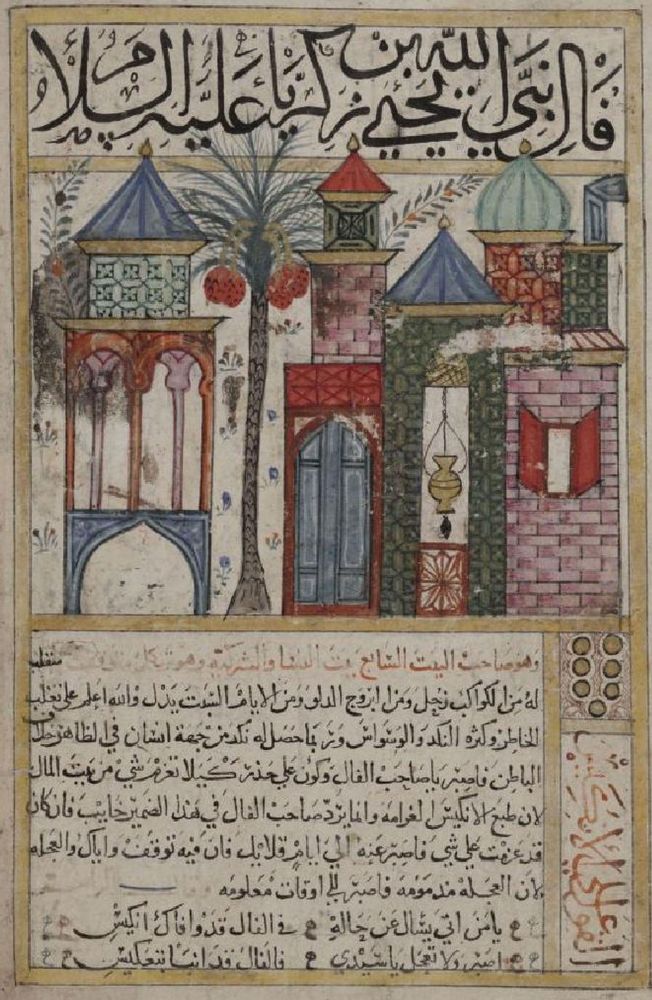 فال نبي الله يحيى بن زكريا عليه السلام
وهو صاحب البيت السابع بيت النسا والشركة وهو شكل منقلب
له من الكواكب زحل ومن البروج الدلو ومن الايام السبت يدل والله اعلم على تغلب
الخاطر وكثرة النكد والوسواس وربما حصل له نكد من جهة انسان في الظاهر خلاف
الباطن فاصبر يا صاحب الفال وكون على حذر كيلا تغرم شي من بيت المال
لان طبع الانكيس الغرامه وانما يرد صاحب الفال في هذا الضمير خايب فان كان
قد عزمت على شي فاصبر عنه الي ايام قلايل فان فيه توقف واياك والعجله
لان العجلة مذمومة فاصبر الي اوقات معلومه
يا من اتى يسال عن حاله في الفال قد وافاك انكيس
اصبر ولا تعجل يا سيدي فالفال قد انبا بتعكيس
القول على الانكيس